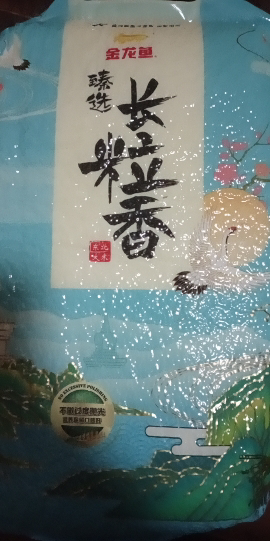 金龙鱼
臻选
长粒香
NO EXCESSIVE POLISHING
不做过度抛光